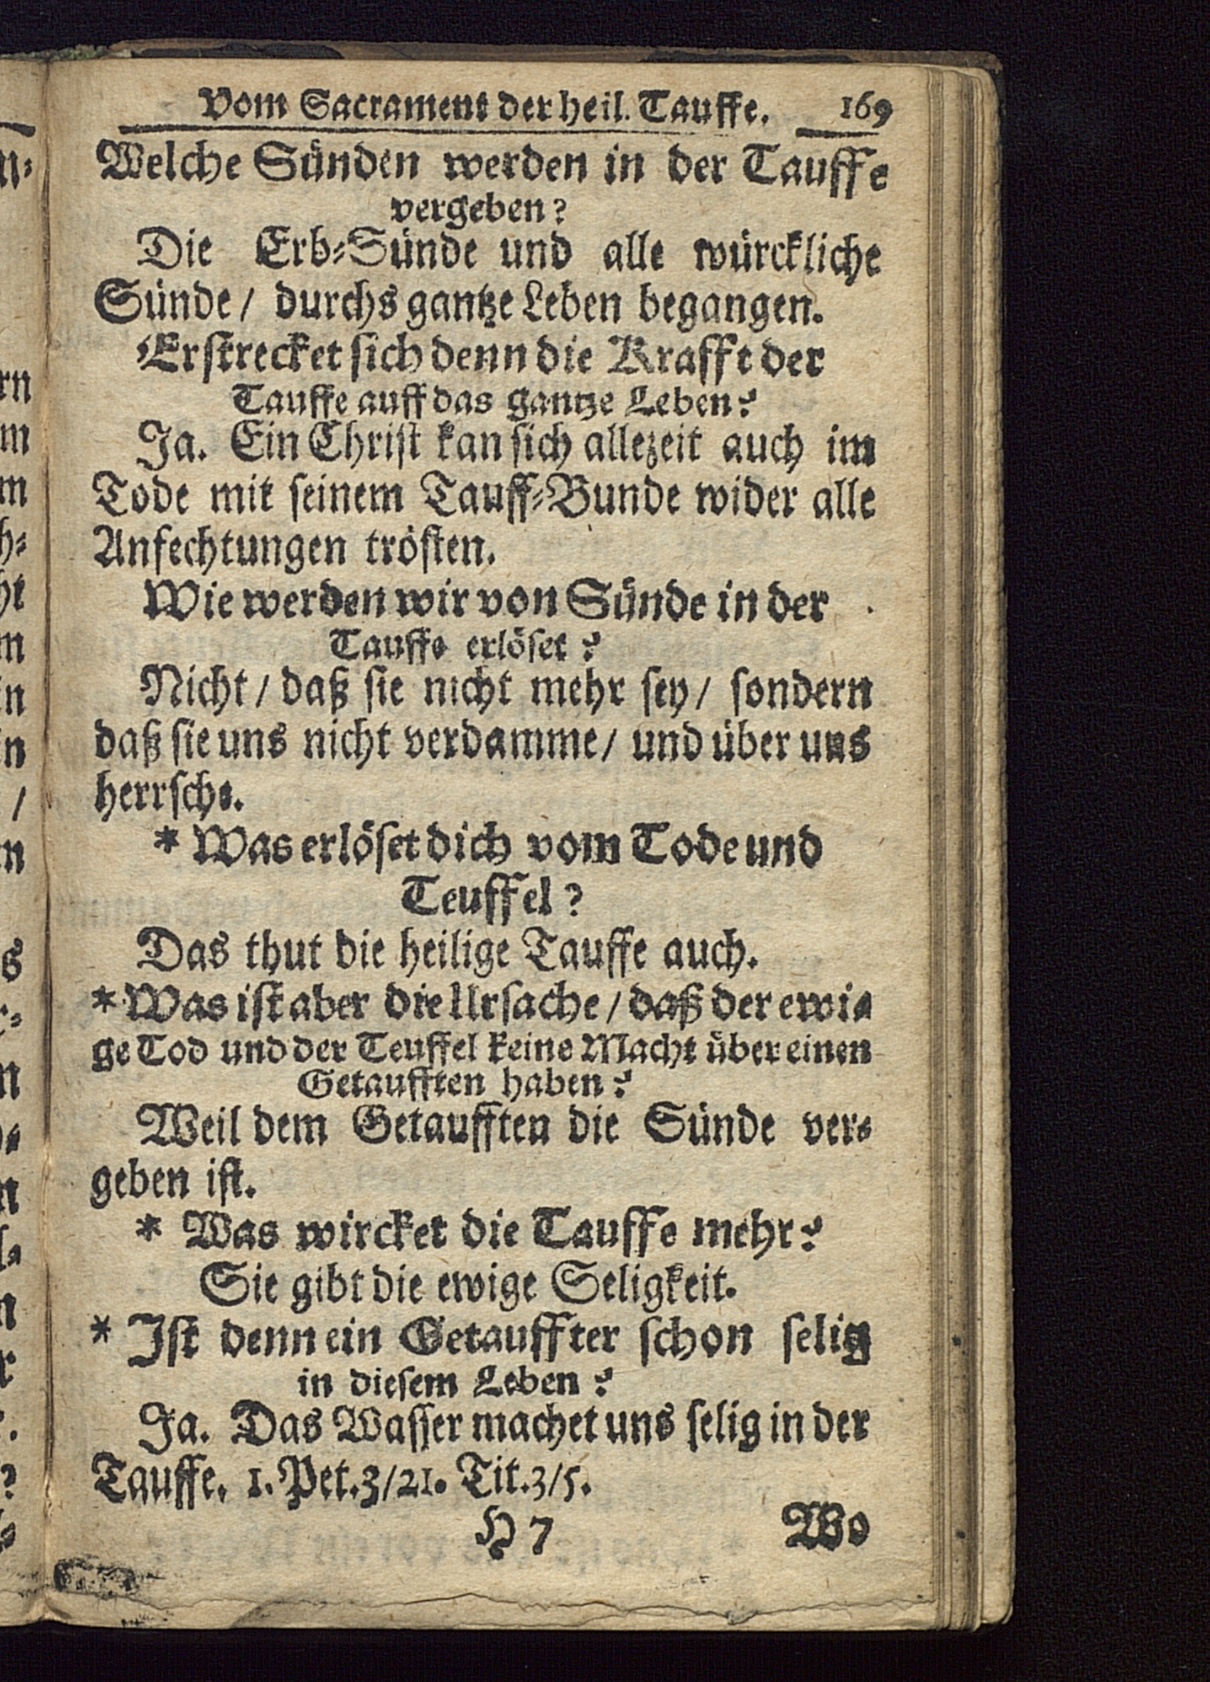 Vom Sacrament der heil. Tauffe. 169
Welche Sünden werden in der Tauffe
vergeben?
Die Erb-Sünde und alle würckliche
Sünde / durchs gantze Leben begangen.
Erstrecket sich denn die Krafft der
Tauffe auff das gantze Leben?
Ja. Ein Christ kan sich allezeit auch im
Tode mit seinem Tauff-Bunde wider alle
Anfechtungen trösten.
Wie werden wir von Sünde in der
Tauffe erlöset?
Nicht / daß sie nicht mehr sey / sondern
daß sie uns nicht verdamme / und über uns
herrsche.
* Was erlöset dich vom Tode und
Teuffel?
Das thut die heilige Tauffe auch.
* Was ist aber die Ursache / daß der ewi-
ge Tod und der Teuffel keine Macht über einen
Getaufften haben?
Weil dem Getaufften die Sünde ver-
geben ist.
* Was wircket die Tauffe mehr?
Sie gibt die ewige Seligkeit.
* Ist denn ein Getauffter schon selig
in diesem Leben?
Ja. Das Wasser machet uns selig in der
Tauffe. 1. Pet. 3/21. Tit. 3/5.
H 7 Wo